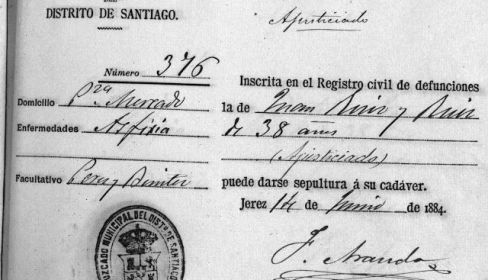 DEL
DISTRITO DE SANTIAGO.
Ajusticiado
Número 376
Domicilio Pza Mercado
Enfermedades Asfixia
Facultativo Perez y Benitez
Inscrita en el Registro civil de defunciones
la de Juan Ruiz y Ruiz
de 38 años
(Ajusticiado)
puede darse sepultura á su cadáver.
Jerez 14 de Junio de 1884.
F. Aranda
JUZGADO MUNICIPAL DEL DISTº DE SANTIAGO